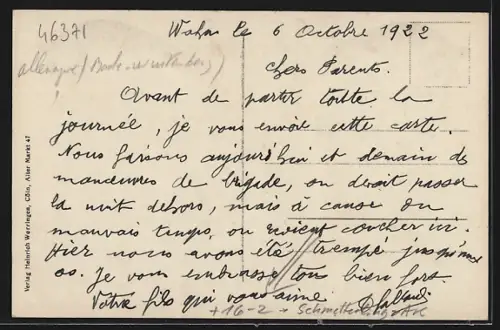 46371
Wahn le 6 Octobre 1922
allemagne / Bade-wurtemberg /
Chers Parents.
Avant de partir toute la
journée, je vous envoie cette carte.
Nous faisons aujourd'hui et demain des
manœuvres de brigade, on devait passer
la nuit dehors, mais à cause du
mauvais temps, on revient coucher ici.
Hier nous avons été trempé jusqu'aux
os. Je vous embrasse tous bien fort.
Votre fils qui vous aime
+ 16-2 - Schmetterling
Verlag Heinrich Werringen, Cöln, Alter Markt 47